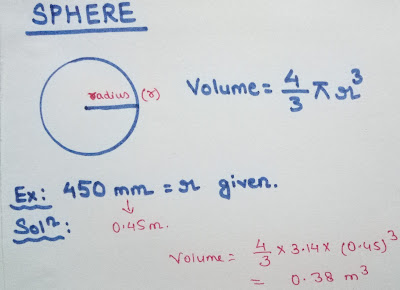 SPHERE
radius (r)
Volume = 4/3 π r³
Ex: 450 mm = r given.
Solⁿ: ↓
0.45m.
Volume = 4/3 × 3.14 × (0.45)³
= 0.38 m³